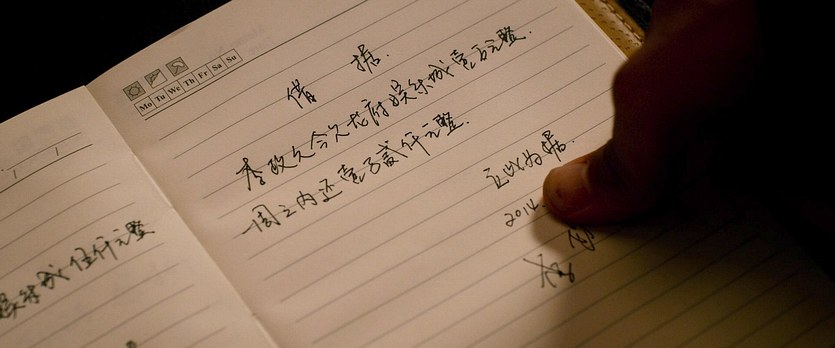 Mo Tu We Th Fr Sa Su
借 据.
李政久今欠龙府娱乐城壹万元整.
一周之内还壹万贰仟元整.
立此为据.
2014.
娱乐城伍仟元整